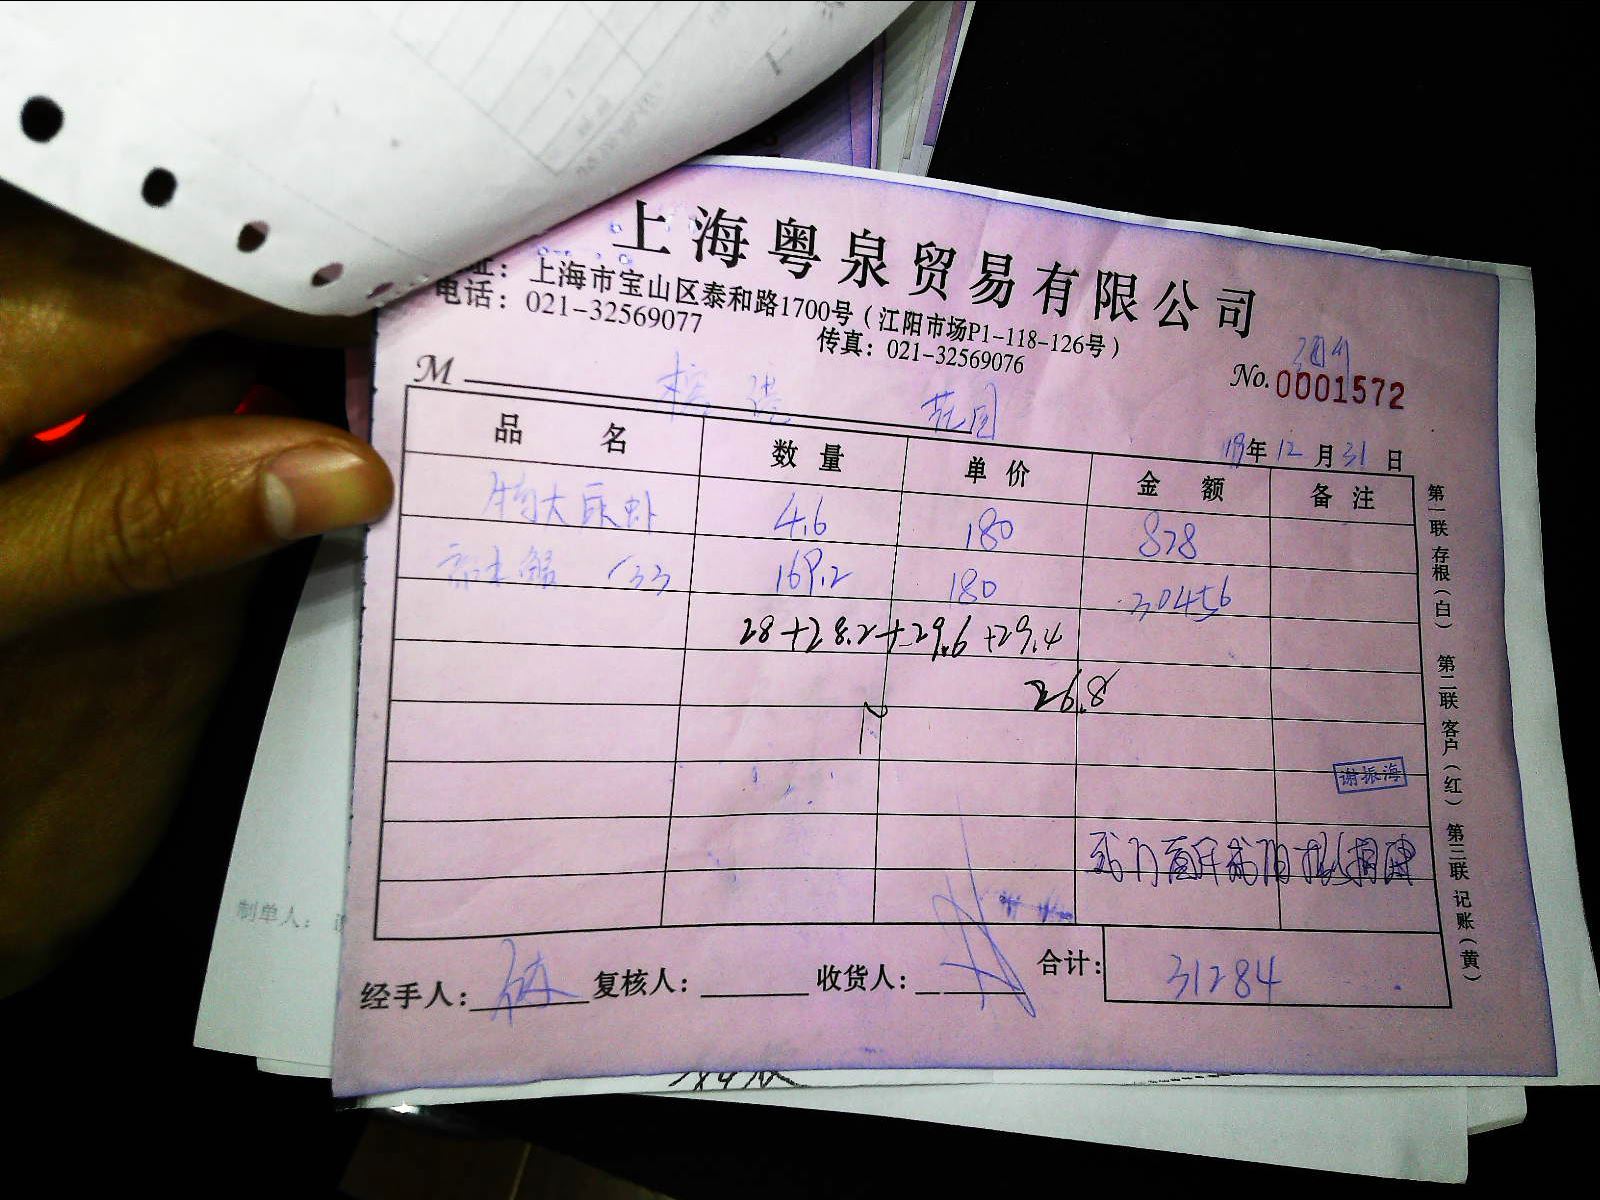 上海粤泉贸易有限公司
上海市宝山区泰和路1700号（江阳市场P1-118-126号）
电话：021-32569077
传真：021-32569076
No.0001572
M
12月31日
品名 数量 单价 金额 备注
4.6 180 828
169.2 180 30456
28+28.2+29.6+29.4
26.8
谢振海
经手人： 复核人： 收货人： 合计：31284
第一联 存根（白） 第二联 客户（红） 第三联 记账（黄）
制单人：